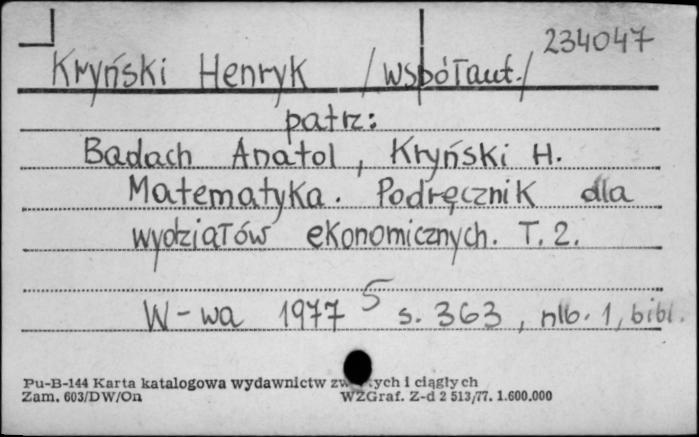 234047
Kryński Henryk /współaut./
patrz:
Badach Anatol, Kryński H.
Matematyka. Podręcznik dla
wydziałów ekonomicznych. T. 2.
W-wa 1977 5 s. 363, nlb. 1, bibl.
Pu-B-144 Karta katalogowa wydawnictw i ciągłych
Zam. 603/DW/On WZGraf. Z-d 2 513/77. 1.600.000